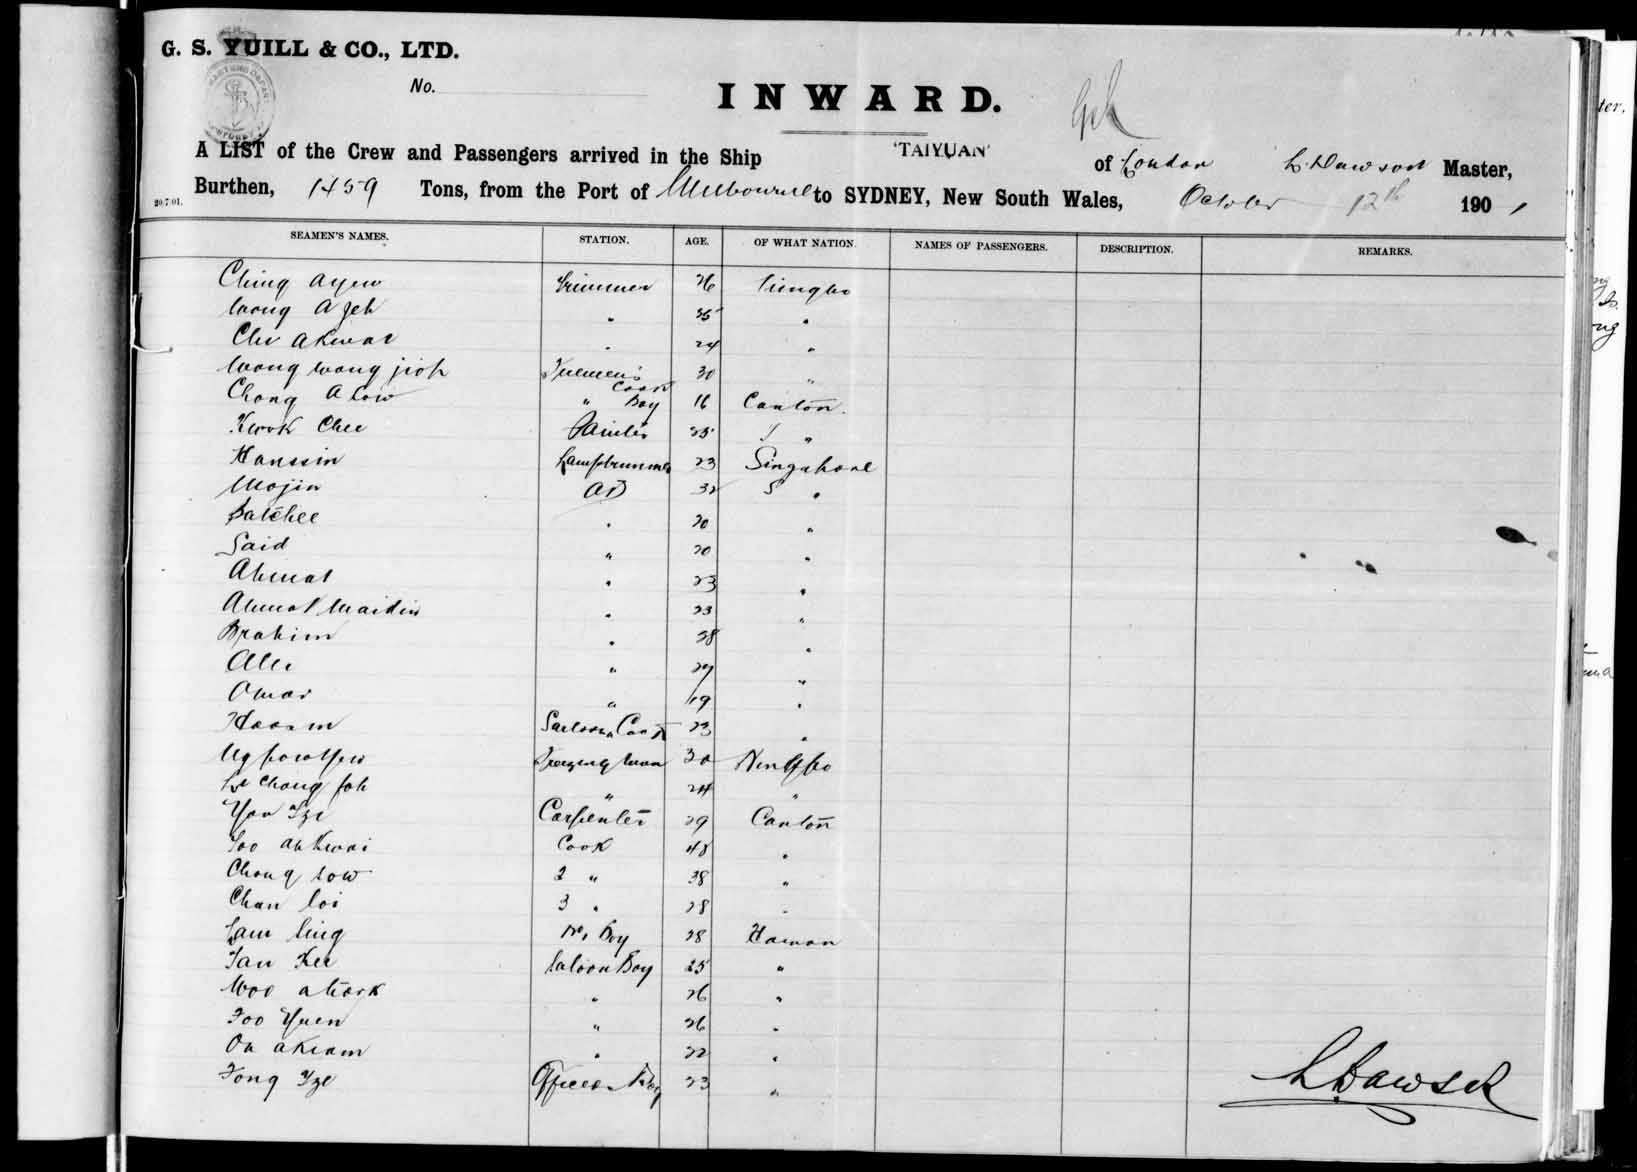 G. S. YUILL & CO., LTD.
No.
INWARD.
A LIST of the Crew and Passengers arrived in the Ship 'TAIYUAN' of London L. Dawson Master,
Burthen, 1459 Tons, from the Port of Melbourne to SYDNEY, New South Wales, October 12th 1901
20/7/01.
SEAMEN'S NAMES. STATION. AGE. OF WHAT NATION. NAMES OF PASSENGERS. DESCRIPTION. REMARKS.
Ching Ayew Trimmer 26
Wong A Jeh " 35 "
Che Akwai " 24 "
Wong Wong Firemen's Cook 30 "
Chong A Low " Boy 16 Canton.
Kwok Chee Painter 25 "
Hanssin Lamptrimmer 23 Singapore
Mojin AB 32 "
Batchee " 20 "
Said " 20 "
Ahmat " 23 "
Ahmat Maidin " 23 "
Brahim " 28 "
Alli " 27 "
Omar " 19 "
Hoosm Sailors Cook 23 "
30 Ningpo
Chong Foh " 24 "
Yow Sze Carpenter 29 Canton
Soo ah Kwai Cook 48 "
Chong Low 2 " 38 "
Chan Loi 3 " 28 "
Lam Ling Boy 28 Hainan
Tan Kee Saloon Boy 25 "
Woo " 26 "
Foo Yuen " 26 "
On akiam " 22 "
Fong Sze Officers Boy 23 "
L Dawson